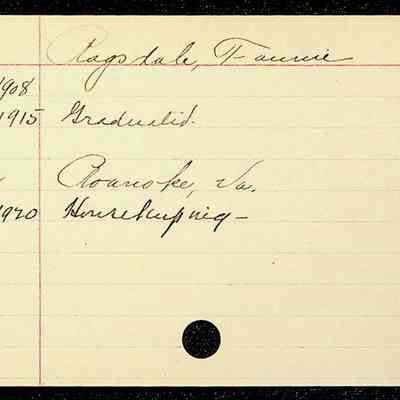 Ragsdale, Fannie
1908
1915 Graduated.
Roanoke, Va.
1920 Housekeeping-